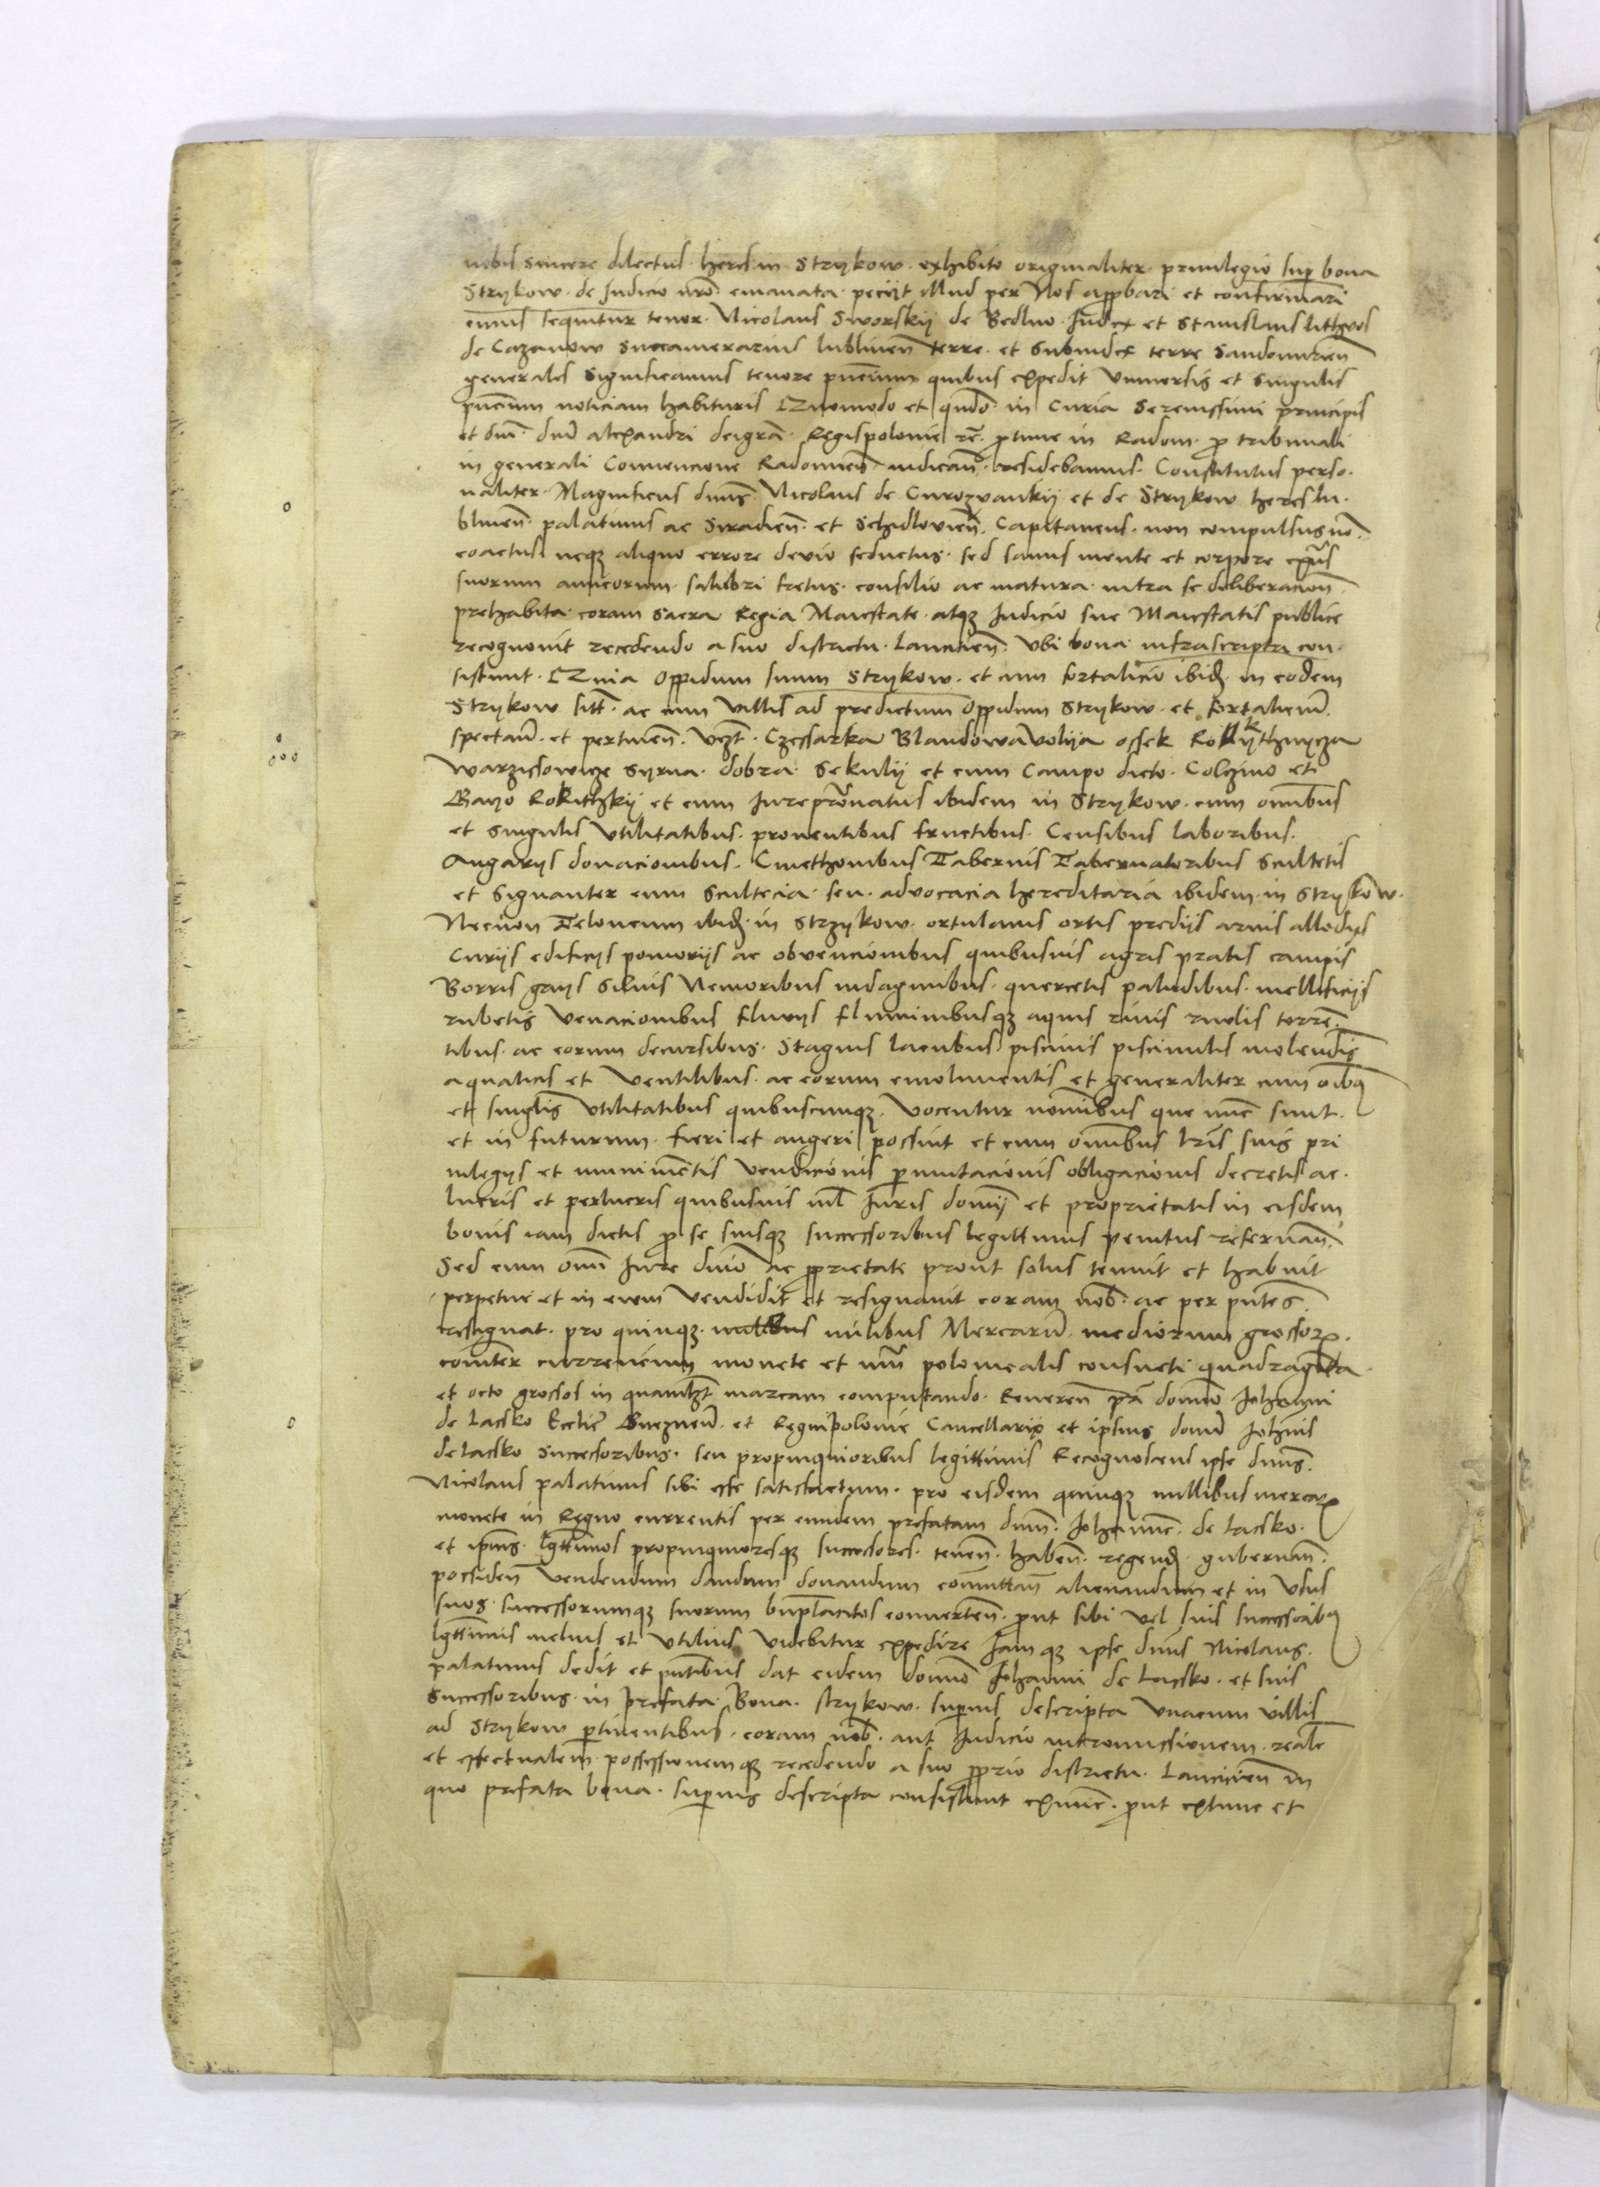 nobis sincere dilectus heres in Strykow exhibito originaliter privilegio sup bona
Strykow de Judicio nro emanata peciit illud per Nos appbari et confirmari
cuius sequitur tenor Nicolaus Sworskij de Bedlno Judex et Stanislaus lithwos
de Cazanow Succamerarius lublinen terre et Subiudex terre Sandomirien
generales Significamus tenore pncium quibus expedit Vniversis et singulis
pncium noticiam habituris Quomodo et qndo in Curia Serenissimi principis
et dni dni alexandri dei gra Regis polonie rc ptunc in Radom p tribunali
in generali Convencione Radomien iudican residebamus Constitutus perso
naliter Magnificus dnus Nicolaus de Curozwankij et de Strykow heres lu
blinen palatinus ac Siradien et Schidlovien Capitaneus non compulsus no
coactus neqz aliquo errore devio seductus sed sanus mente et corpore exns
suorum amicorum salubri fretus consilio ac matura intra se deliberacion
prehabita coram Sacra Regia Maiestate atqz Judicio sue Maiestatis publice
recognovit recedendo a suo districtu lancicien Vbi bona infrascripta con
sistunt Quia Oppidum suum Strykow et cum fortalicio ibid in eodem
Strykow sitt ac cum villis ad predictum Oppidum Strykow et fortalicium
spectan et pertinen vczt Czessarka Blandowa volija ossek
Warzissowicze Syrna dobra Sekulij et cum Campo dicto Colczino et
Bayo Rokithskij et cum Jurepronatus ibidem in Strykow cum omibus
et singulis Vtilitatibus proventibus fructibus Censibus laboribus
Angarijs donacionibus Cmethonibus Tabernis Tabernatoribus Scultetis
et signanter cum Scultecia seu advocacia hereditaria ibidem in Strykow
Necnon Teloneum ibid in Strzykow ortulanis ortis predijs arvis allodijs
Curijs edificijs pomorijs ac obvencionibus quibusvis agris pratis campis
Borris gays Silvis Nemoribus indaginibus quercetis paludibus mellificijs
rubetis Venacionibus fluvijs fluminibusqz aquis rivis rivulis torren
tibus ac eorum decursibus Stagnis lacubus piscinis piscinulis molendis
aquaticis et Ventilibus ac eorum emolumentis et generaliter cum oibq
et singlis Vtilitatibus quibuscunqz Vocentur nominibus que nunc sunt
et in futurum fieri et augeri possint et cum omibus lris suis pri
vilegijs et munimentis Vendicionis pmutacionis obligacionis decretis ac
lucris et perlucris quibusvis nil Juris domij et proprietatis in eisdem
bonis iam dictis p se suisqz successoribus legittimis penitus reservan
Sed cum omi Jure dnio ac pprietate prout solus tenuit et habuit
perpetue et in evum Vendidit et resignavit coram nob ac per pntes
resignat pro quinqz milibus Mercarum mediorum grossorz
comiter currencium monete et nuri polonicalis consueti quadraginta
et octo grossos in quamlzt marcam computando Reveren pa domino Johanni
de lassko Ecclie Gneznen et Regni polonie Cancellario et ipsius domi Johnis
de lassko Successoribus seu propinquioribus legittimis Recognoscens ipse dnus
Nicolaus palatinus sibi esse satisfactum pro eisdem quinqz millibus mercarz
monete in Regno currentis per eundem prefatam dnm Johannem de lassko
et ipius lgttimos propinquioresqz successores tenen haben regend gubernan
possiden Vendendum dandum donandum comuttan alienandum et in Vsus
suos successorumqz suorum bnplacitos converten put sibi vel suis successoribq
lgttimis melius et Vtilius Videbitur expedire Jamqz ipse dnus Nicolaus
palatinus dedit et pntibus dat eidem domino Johanni de lassko et suis
Successoribus in prefata Bona Strykow supius descripta Vnacum Villis
ad Strykow ptinentibus coram nob aut Judicio intromissionem realem
et effectualem possessionemqz recedendo a suo pprio districtu lancicien in
quo prefata bona supius descripta consistunt exnunc put extunc et